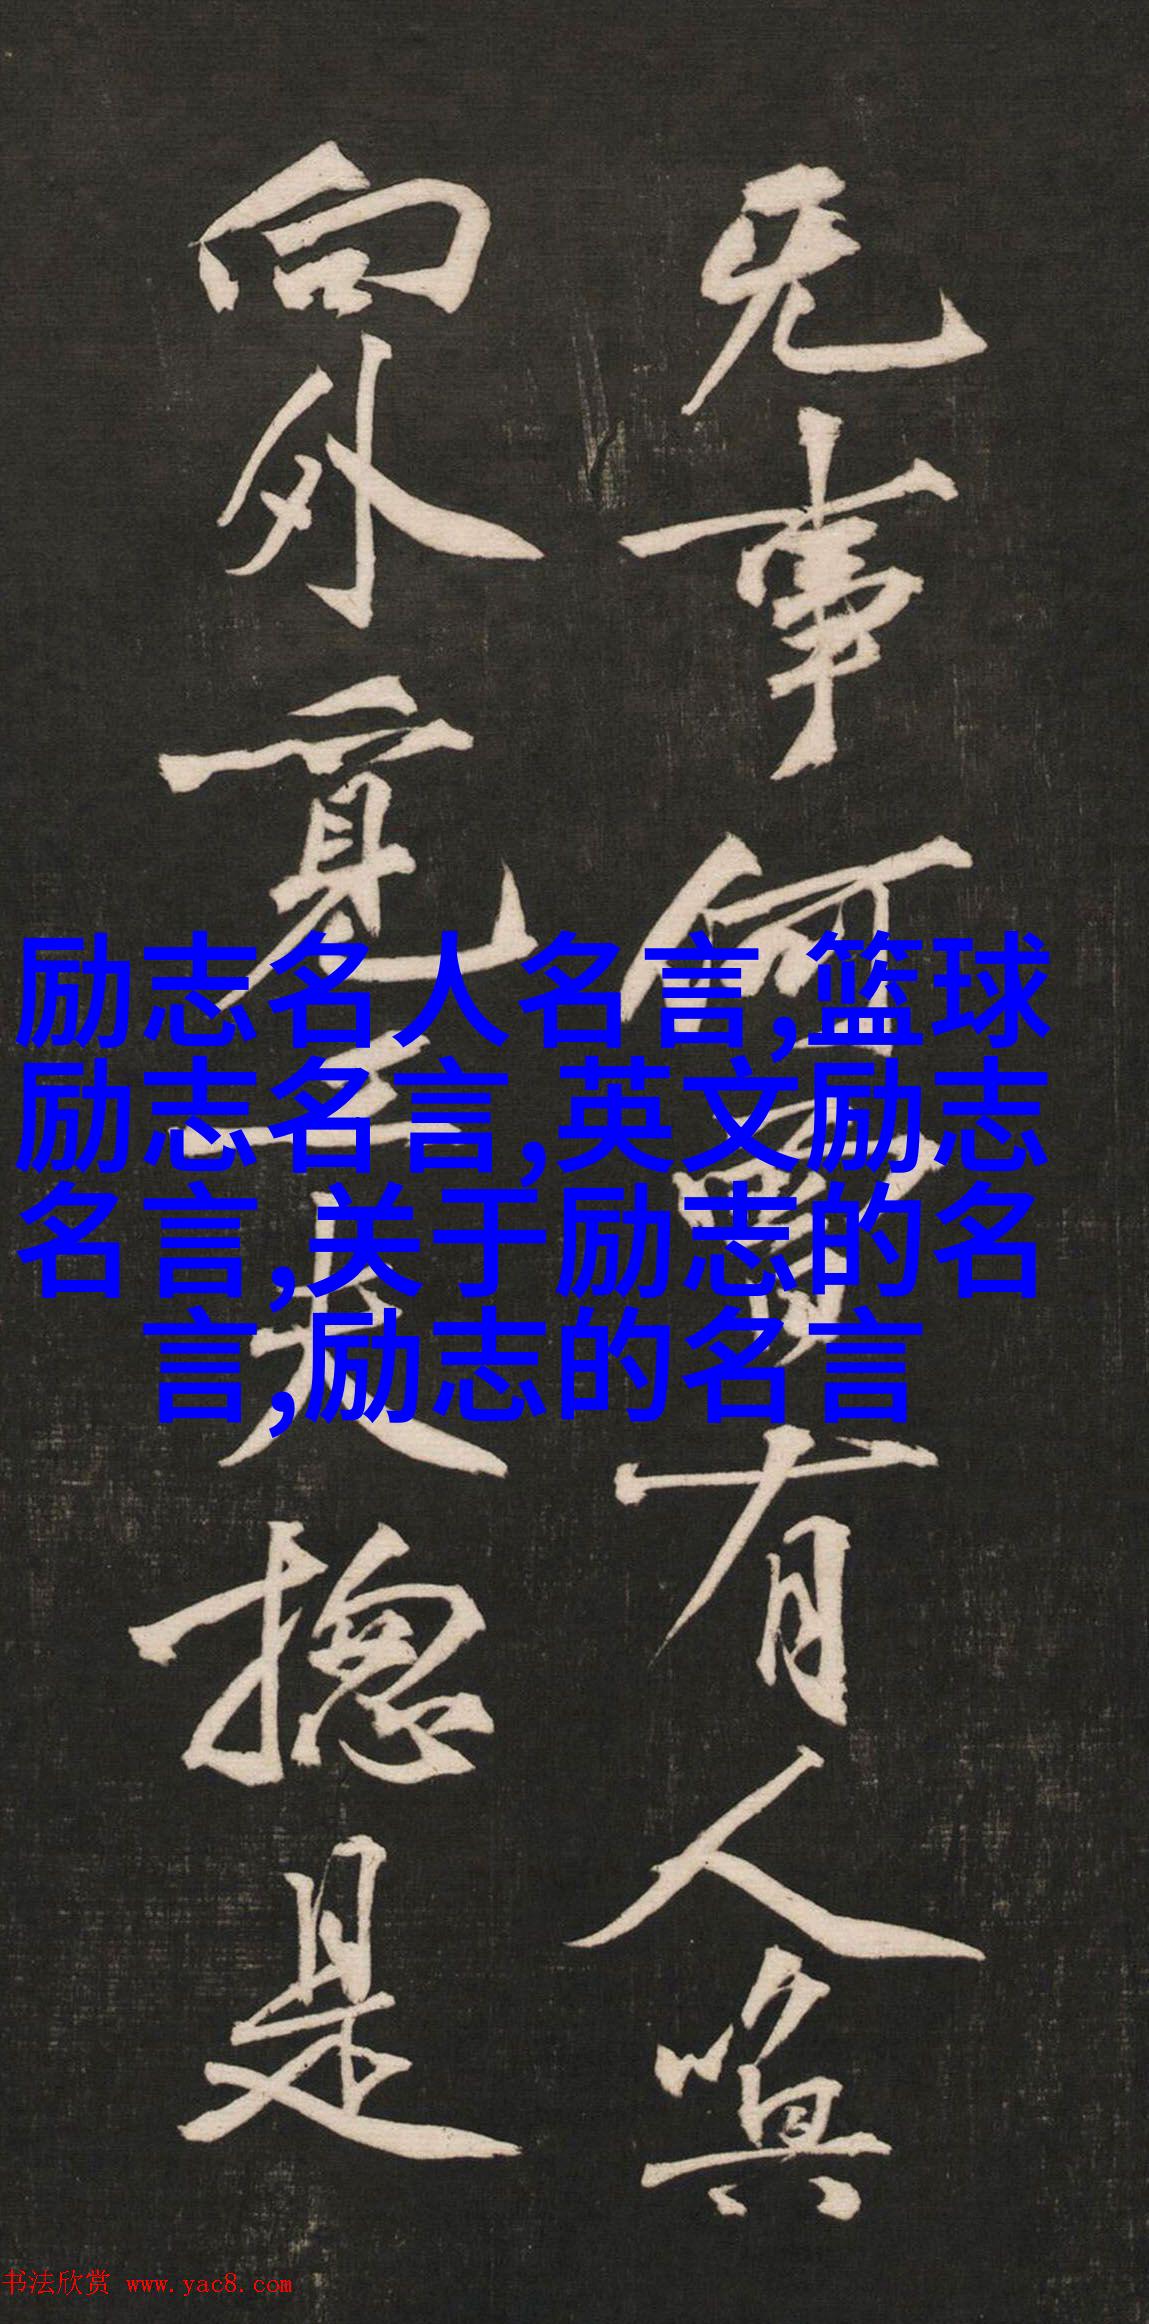 无事何有人
向外覓工夫揔是
励志名人名言,篮球
励志名言,英文励志
名言,关于励志的名
言,励志的名言
书法欣赏 www.yac8.com